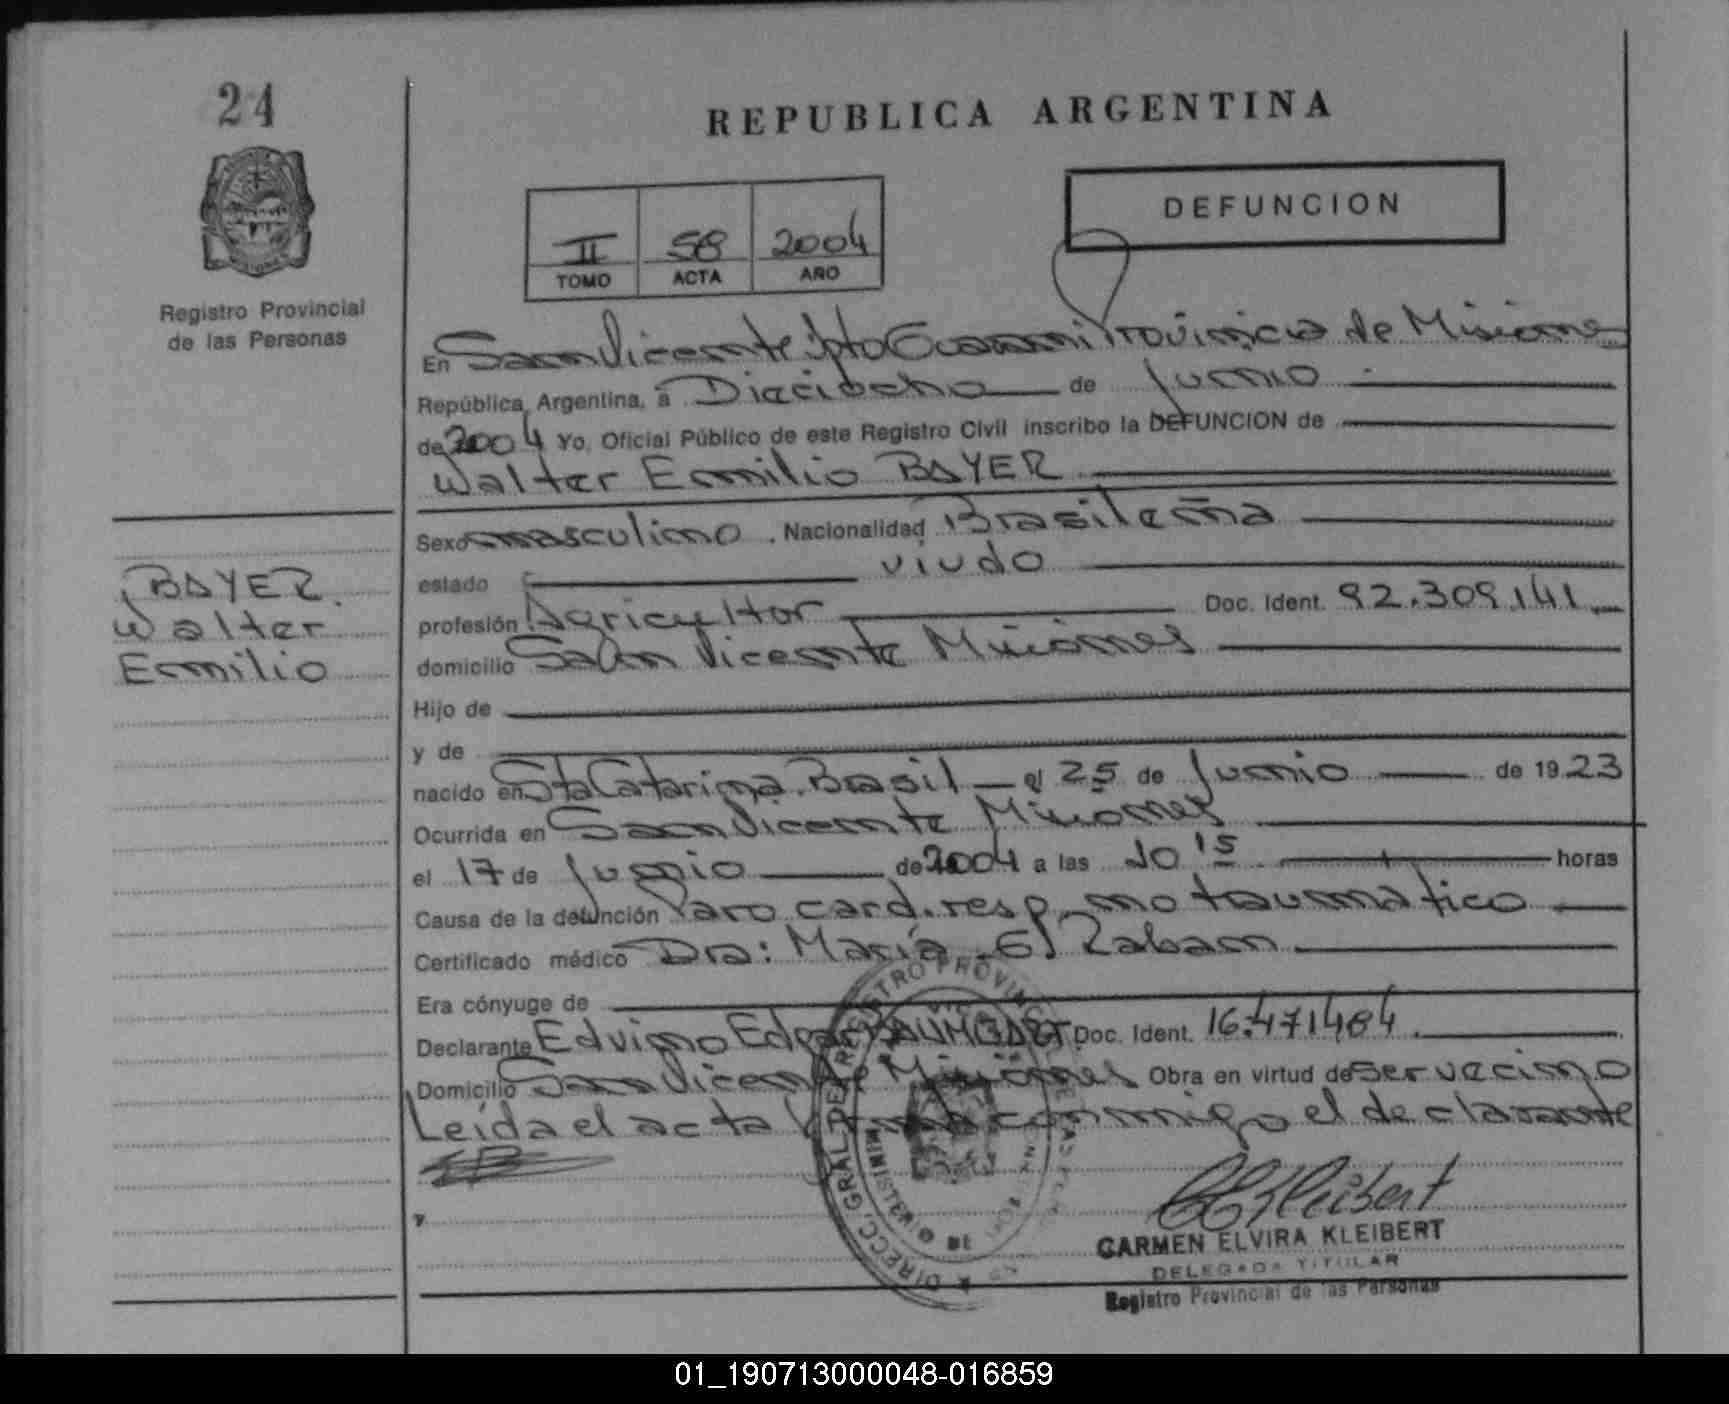 24
REPUBLICA ARGENTINA
DEFUNCION
II 58 2004
TOMO ACTA AÑO
Registro Provincial
de las Personas
En San Vicente Dpto Guarani Provincia de Misiones
República Argentina, a Dieciocho de Junio
de 2004 Yo, Oficial Público de este Registro Civil inscribo la DEFUNCION de
Walter Emilio BAYER
Sexo masculino . Nacionalidad Brasileña
estado viudo
BAYER
Walter
Emilio
profesión Agricultor Doc. Ident. 92.309.141
domicilio San Vicente Misiones
Hijo de
y de
nacido en Sta Catarina Brasil el 25 de Junio de 1923
Ocurrida en San Vicente Misiones
el 17 de Junio de 2004 a las 10 15 horas
Causa de la defunción Paro card. resp. no traumático
Certificado médico Dra: María
Era cónyuge de
Declarante Edvino Doc. Ident. 16.471.484
Domicilio San Vicente Misiones Obra en virtud de
Leída el acta conmigo el declarante
CARMEN ELVIRA KLEIBERT
DELEGADA TITULAR
Registro Provincial de las Personas
01_190713000048-016859